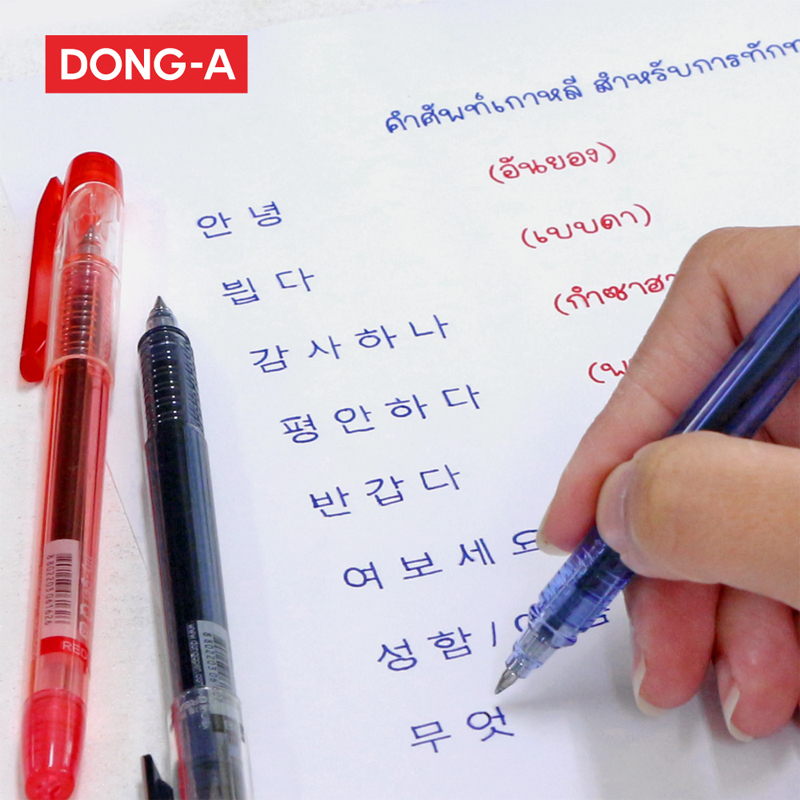 DONG-A
คำศัพท์เกาหลี สำหรับการทัก
안녕 (อันยอง)
뵙다 (เบบดา)
감사하나 (กำซาฮา
평안하다
반갑다
여보세
성함 /
무엇
8802203061626
RED